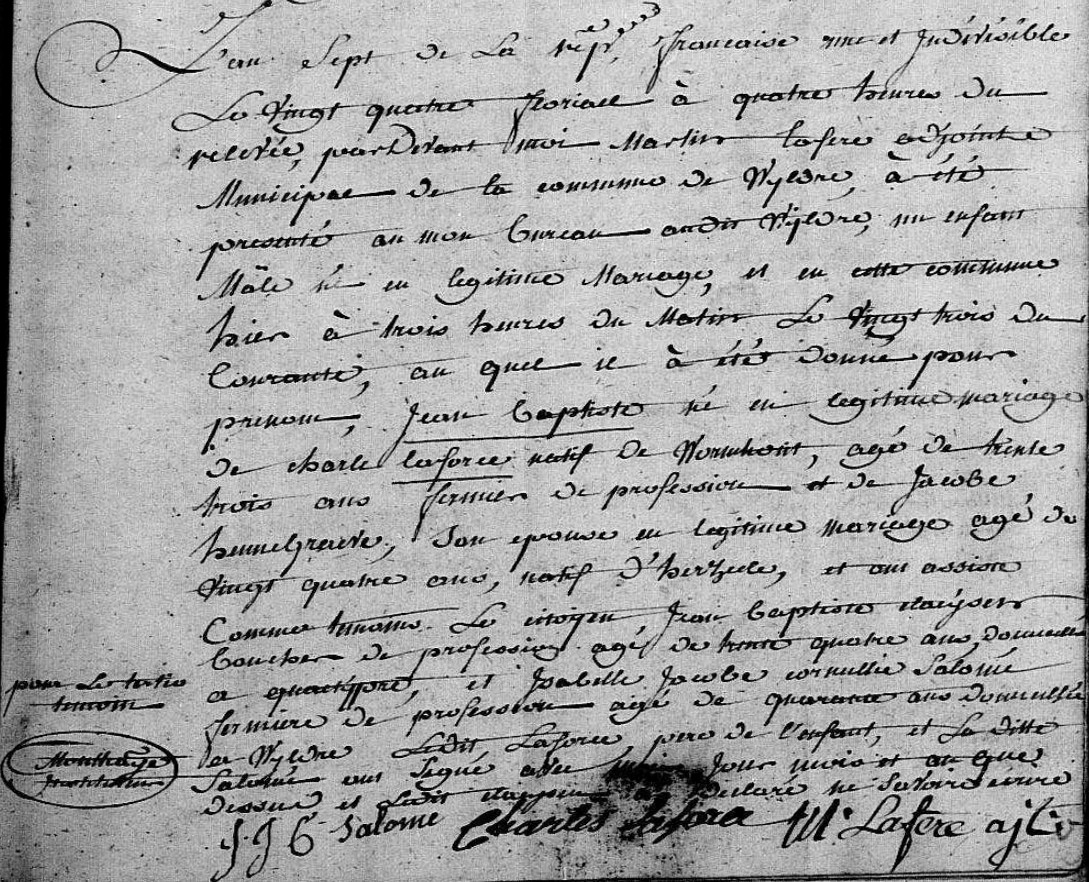 L'an Sept de La rep.e francaise une et Indivisible
Le Vingt quatre floreal à quatre heures du
relevée, pardevant moi Martin lafere adjoint
Municipal de la commune de Wyldre, à été
presenté au mon bureau audit Wyldre, un enfant
Mâle né en legitime Mariage, et en cette commune
hier à trois heures du Matin Le Vingt trois du
Courante, au quel il à étés donné pour
prenom, Jean baptiste né en legitime mariage
de charle laforce natif de Wormhout, agé de trente
trois ans fermier de profession et de Jacobe
Son epouse en legitime mariage agé de
Vingt quatre ans, natif d'herzeele, et ont assisté
Comme temoins Le citoyen Jean baptiste
boucher de profession agé de trente quatre ans, domicillé
a quaetÿpre, et Isabelle Jacobe cornillie Salomé
fermiere de profession agé de quarante ans domicillée
pour Le tertio
temoin
à Wyldre Ledit Laforce pere de l'enfant, et La ditte
Salomé ont Segné avec moi Jour mois et an que
dessus et Ledit a declaré ne Savoir ecrire
S J C Salomé Charles laforce M: Lafere ajt